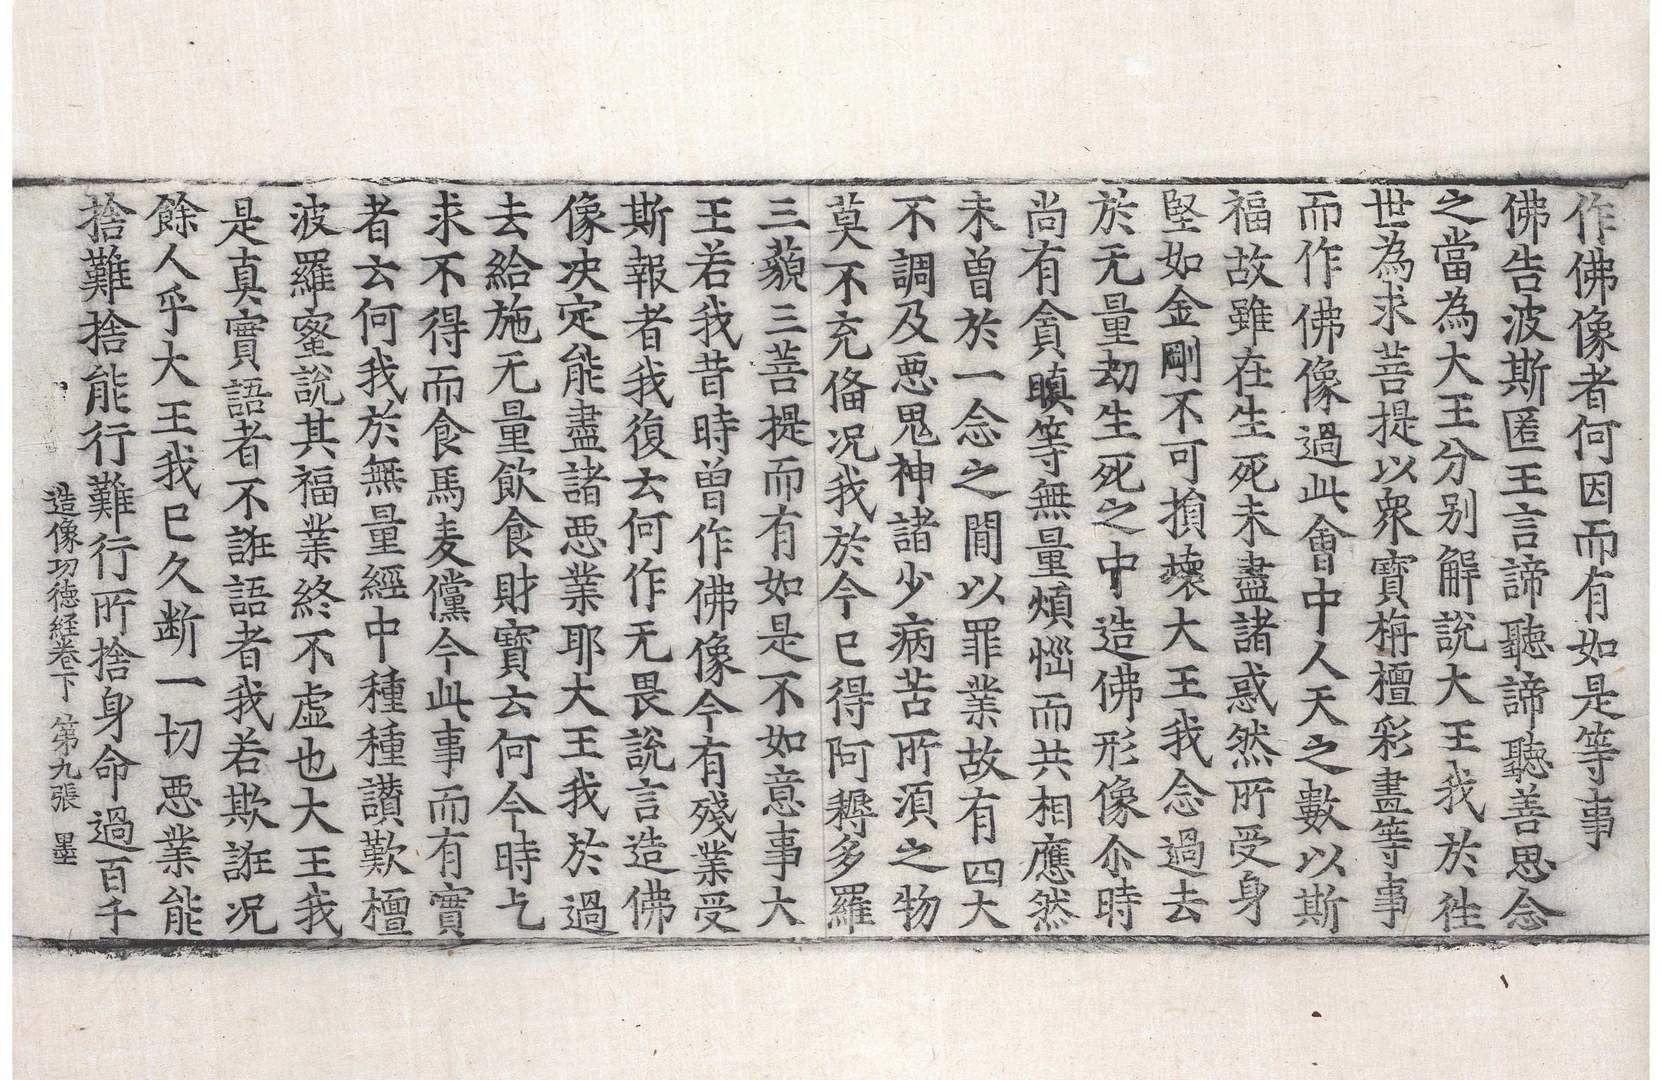 作佛像者何因而有如是等事
佛告波斯匿王言諦聽諦聽善思念
之當為大王分别解說大王我於往
世為求菩提以衆寳栴檀彩畫等事
而作佛像過此會中人天之數以斯
福故雖在生死未盡諸惑然所受身
堅如金剛不可損壞大王我念過去
於无量劫生死之中造佛形像尒時
尚有貪瞋等無量煩惱而共相應然
未曾於一念之間以罪業故有四大
不調及悪鬼神諸少病苦所湏之物
莫不充俻况我於今已得阿耨多羅
三藐三菩提而有如是不如意事大
王若我昔時曾作佛像今有殘業受
斯報者我復云何作无畏說言造佛
像决定能盡諸悪業耶大王我於過
去給施无量飲食財寳云何今時乞
求不得而食馬麦儻今此事而有實
者云何我於無量經中種種讃歎檀
波羅蜜說其福業終不虚也大王我
是真實語者不誑語者我若欺誑况
餘人乎大王我已久断一切悪業能
捨難捨能行難行所捨身命過百千
造像功徳経卷下 第九張 墨